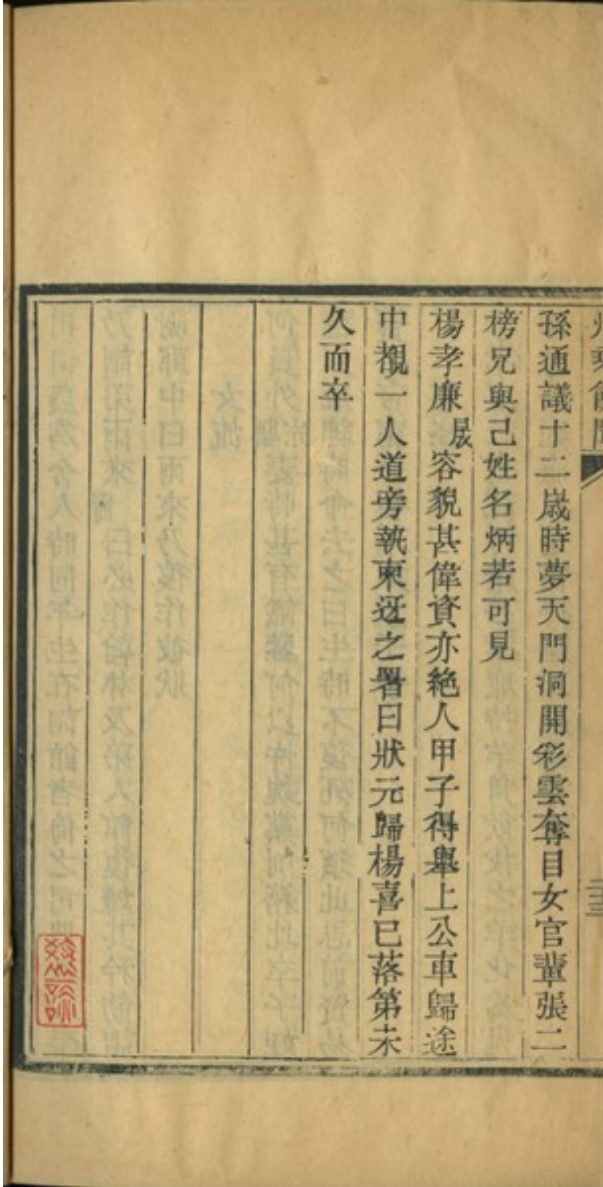 孫通議十二歲時夢天門洞開彩雲奪目女官輩張二
榜兄與己姓名炳若可見
楊孝廉 容貌甚偉資亦絕人甲子得舉上公車歸途
中覩一人道旁執柬迓之署曰狀元歸楊喜已落第未
久而卒